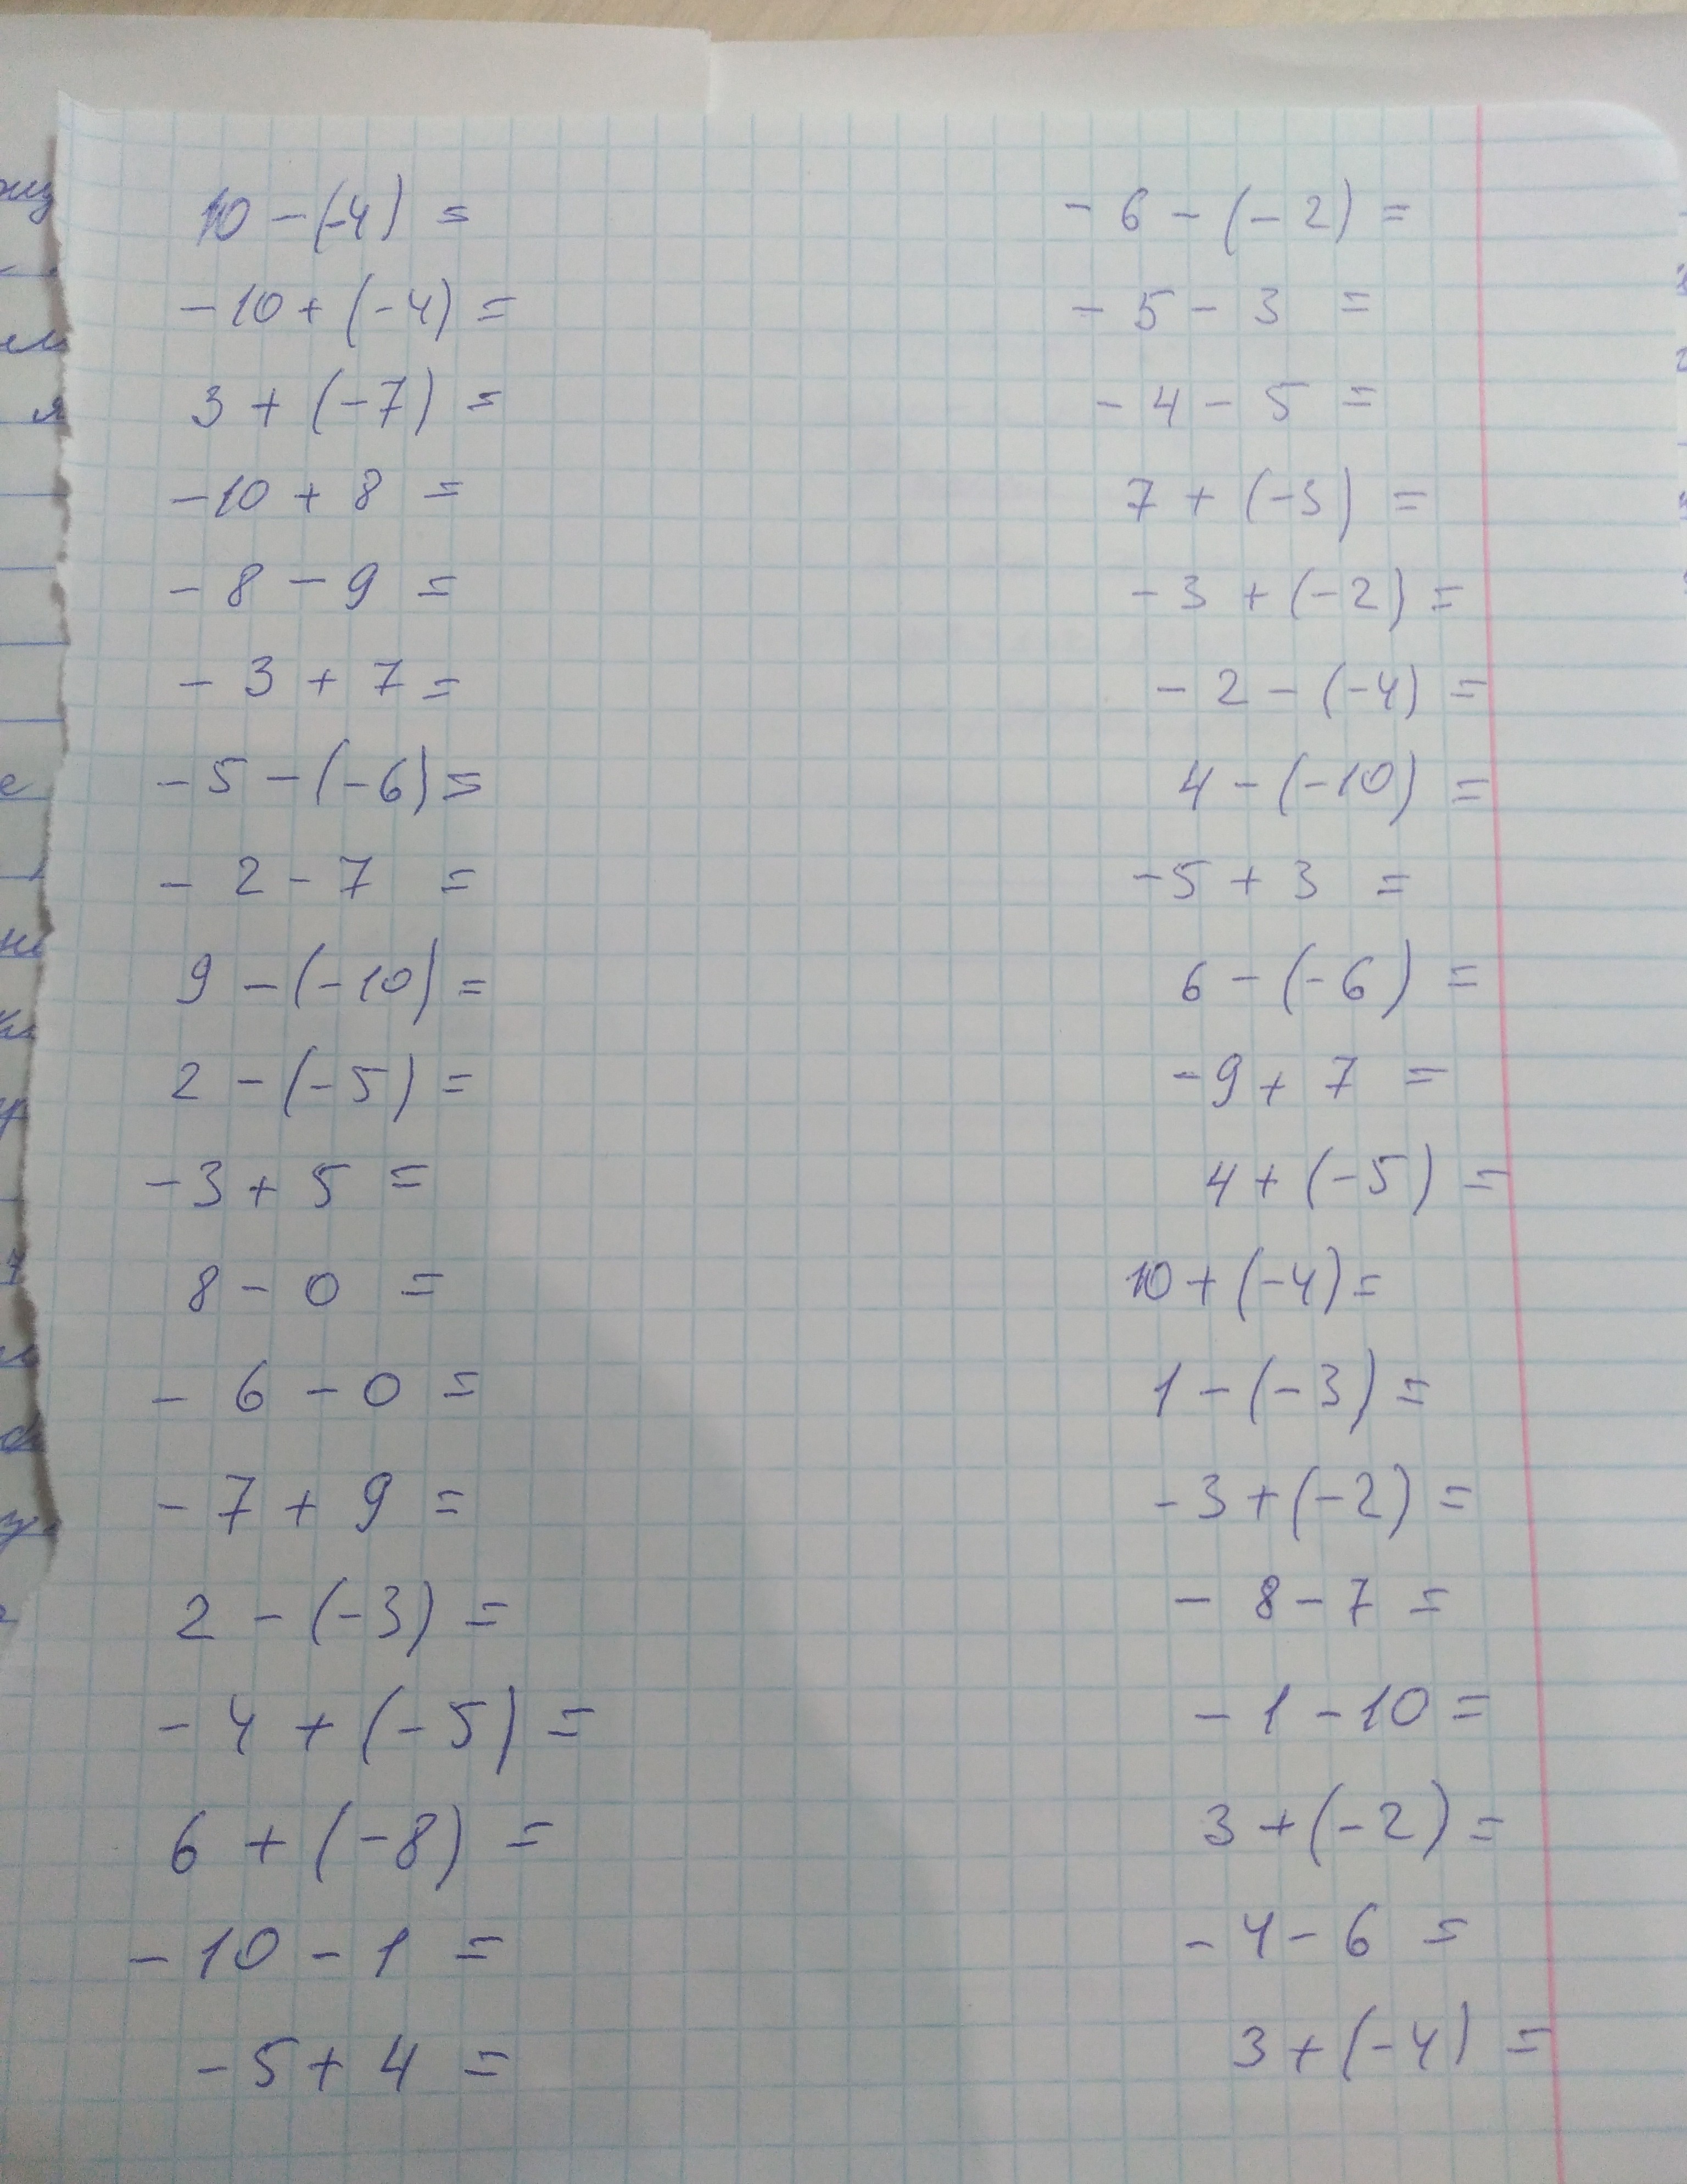 10 - (-4) =
-10 + (-4) =
3 + (-7) =
-10 + 8 =
-8 - 9 =
-3 + 7 =
-5 - (-6) =
-2 - 7 =
9 - (-10) =
2 - (-5) =
-3 + 5 =
8 - 0 =
-6 - 0 =
-7 + 9 =
2 - (-3) =
-4 + (-5) =
6 + (-8) =
-10 - 1 =
-5 + 4 =
-6 - (-2) =
-5 - 3 =
-4 - 5 =
7 + (-3) =
-3 + (-2) =
-2 - (-4) =
4 - (-10) =
-5 + 3 =
6 - (-6) =
-9 + 7 =
4 + (-5) =
10 + (-4) =
1 - (-3) =
-3 + (-2) =
-8 - 7 =
-1 - 10 =
3 + (-2) =
-4 - 6 =
3 + (-4) =